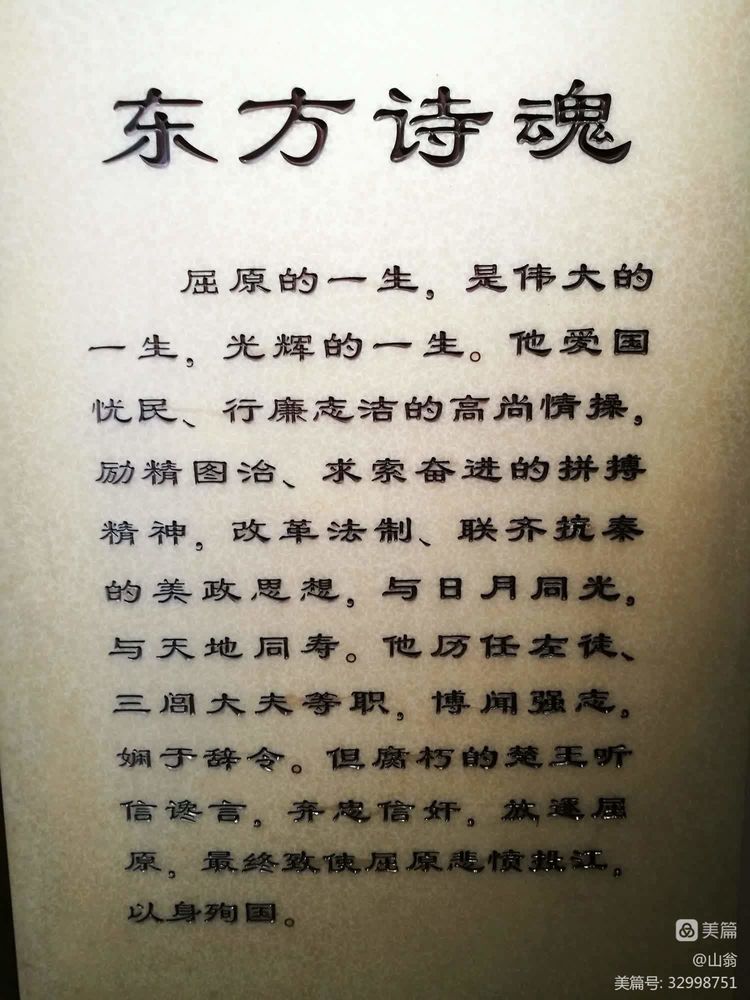 东方诗魂
屈原的一生，是伟大的
一生，光辉的一生。他爱国
忧民、行廉志洁的高尚情操，
励精图治、求索奋进的拼搏
精神，改革法制、联齐抗秦
的美政思想，与日月同光，
与天地同寿。他历任左徒、
三闾大夫等职，博闻强志，
娴于辞令。但腐朽的楚王听
信谗言，弃忠信奸，放逐屈
原，最终致使屈原悲愤投江，
以身殉国。
美篇
@山翁
美篇号: 32998751